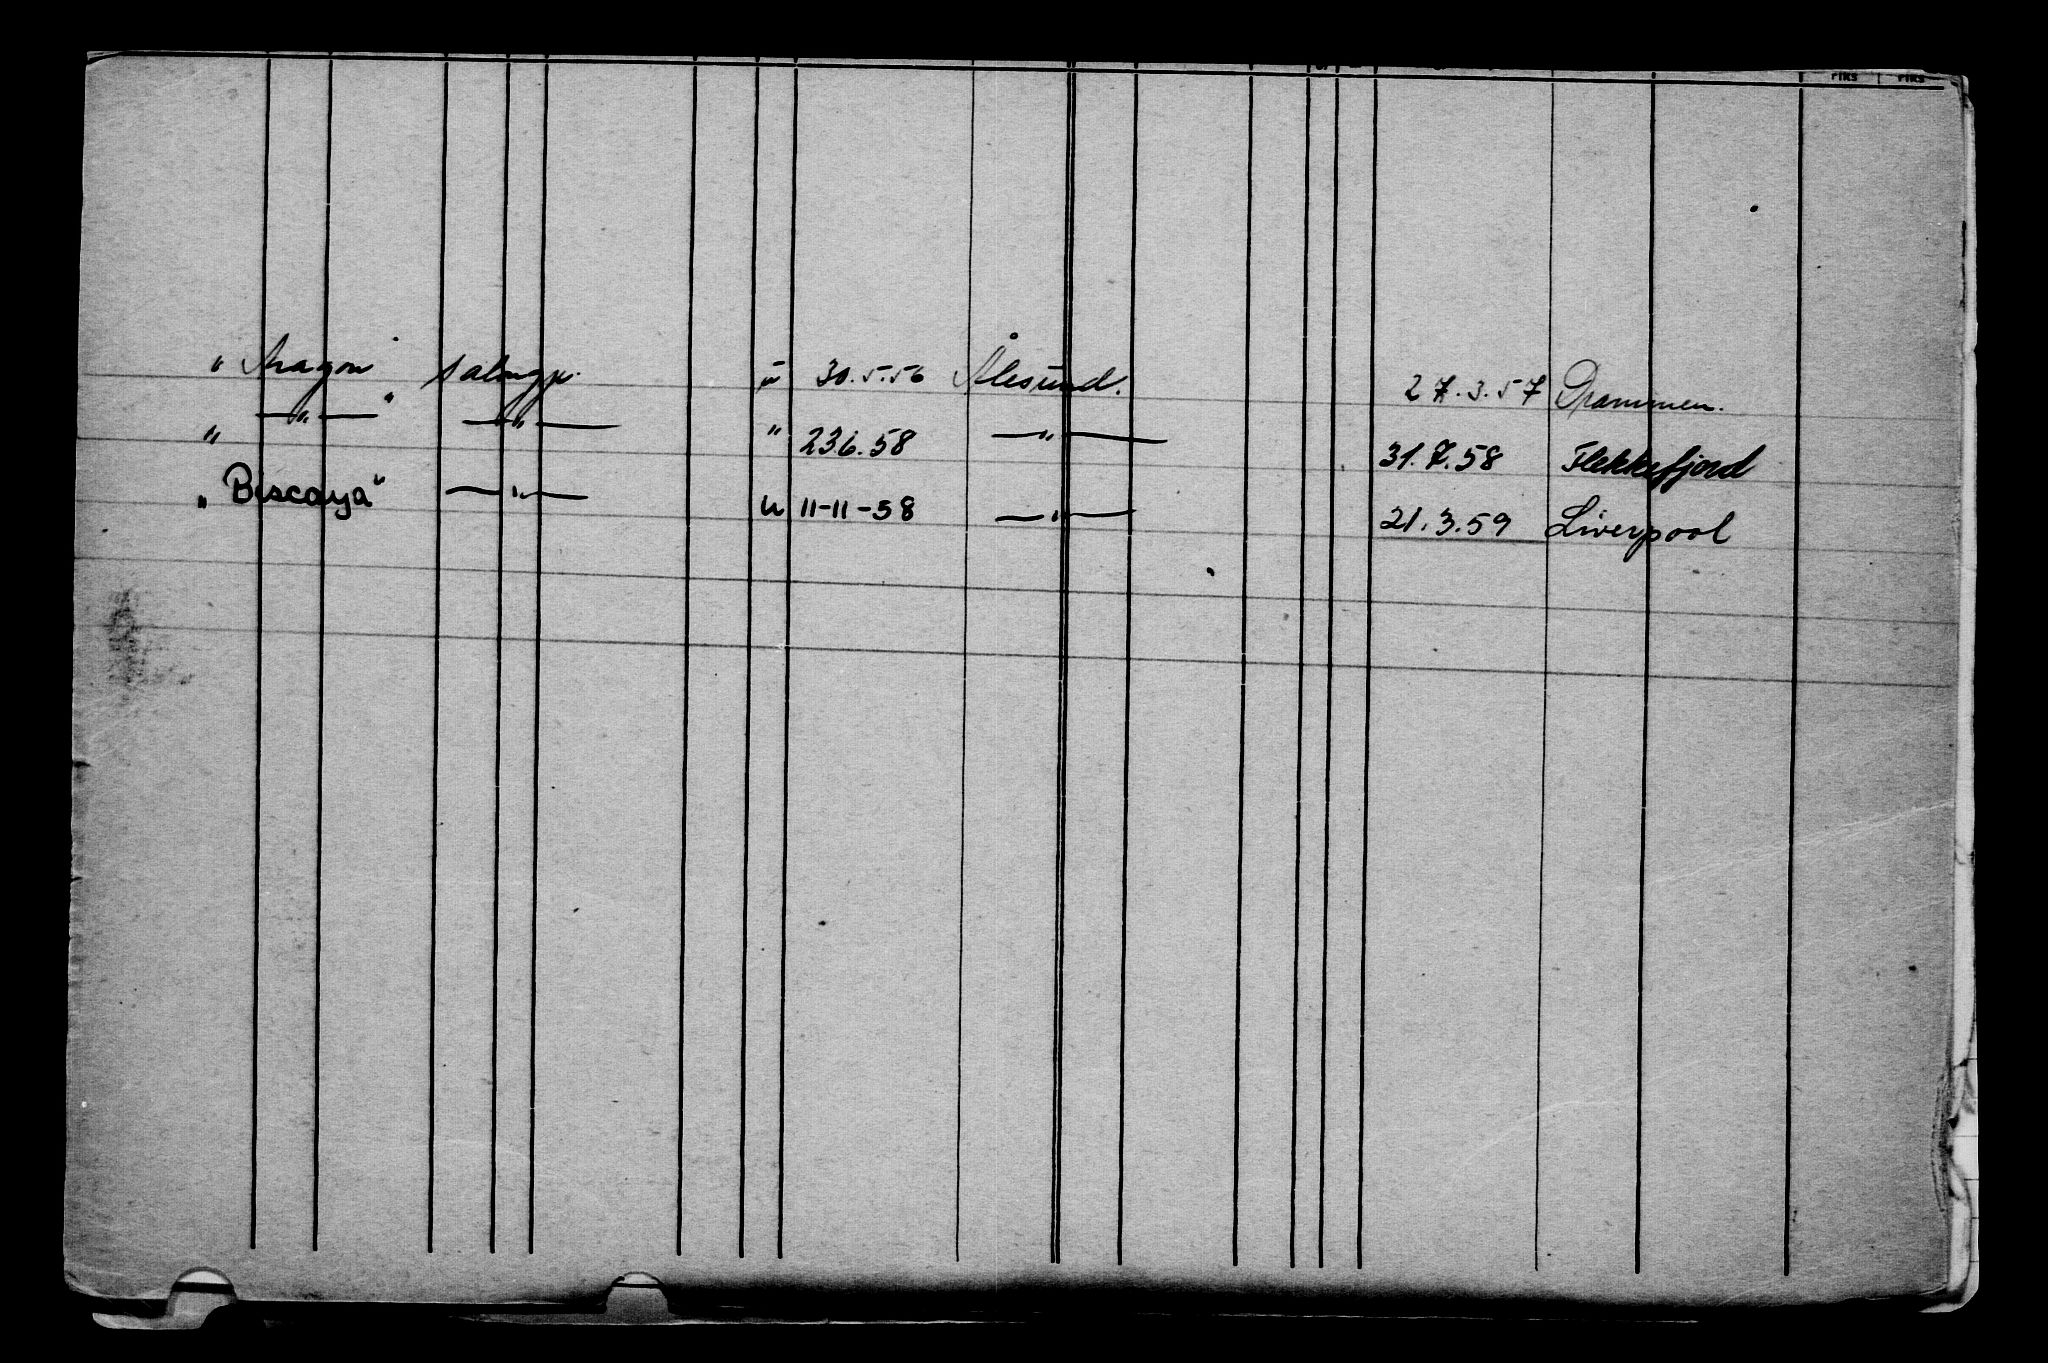 FIRS FIRS
"Aragon" salongp. u 30.5.56 Ålesund. 27.3.57 Drammen.
" —"— " —"— " 23.6.58 —"— 31.7.58 Flekkefjord
"Biscaya" —"— u 11-11-58 —"— 21.3.59 Liverpool